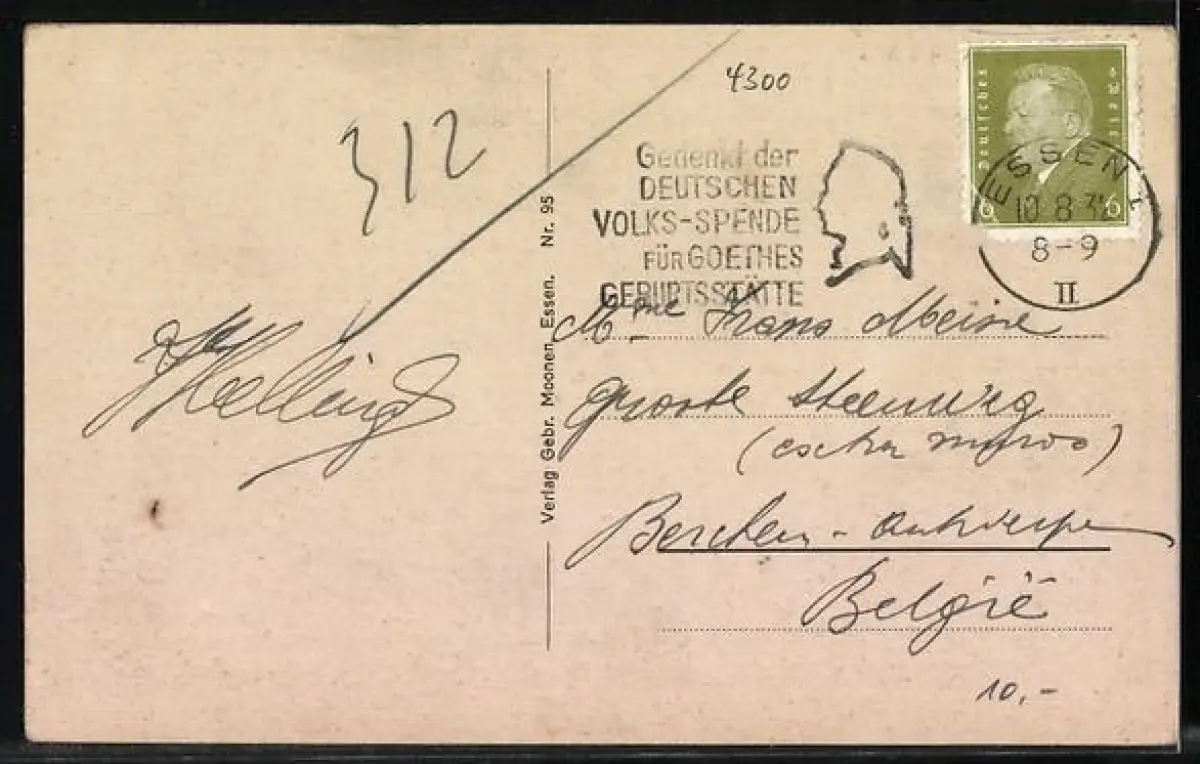 312
4300
Gedenkt der
DEUTSCHEN
VOLKS-SPENDE
FÜR GOETHES
GEBURTSSTÄTTE
Deutsches Reich
6 6
ESSEN 1
10.8.32
8-9
II
Verlag Gebr. Moonen, Essen. Nr. 95
Mme Frans
Groote Steenweg
Berchem - Antwerpen
België
10,-